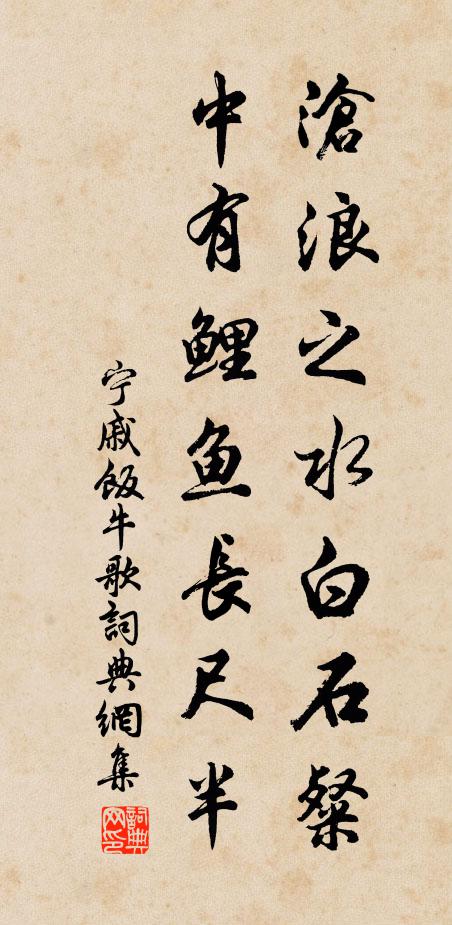 滄浪之水白石粲
中有鲤鱼長尺半
宁戚飯牛歌詞典網集
詞典网印